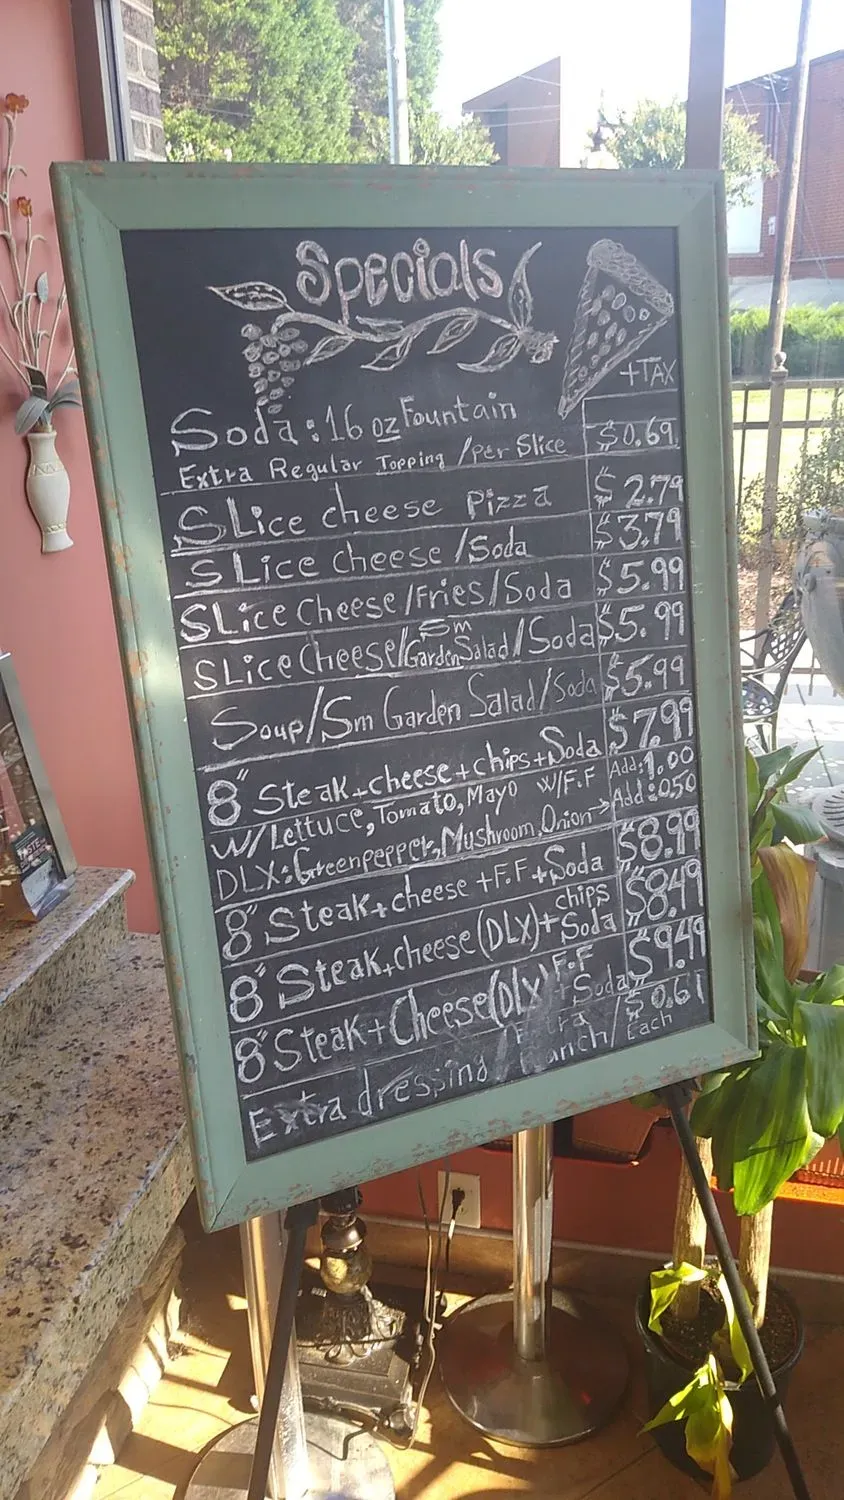 Specials
+TAX
Soda: 16 oz Fountain
Extra Regular Topping /per Slice $0.69
SLice cheese pizza $2.79
SLice cheese /Soda $3.79
SLice Cheese/Fries/Soda $5.99
SLice Cheese/Sm Garden Salad/Soda $5.99
Soup/Sm Garden Salad/Soda $5.99
8" Steak+cheese+chips+Soda $7.99
W/Lettuce, Tomato, Mayo W/F.F Add:1.00
DLX: Greenpepper, Mushroom, Onion→ Add:0.50
8" Steak+cheese +F.F.+Soda $8.99
8" Steak+cheese (DLX)+ chips Soda $8.49
8" Steak+Cheese (DLX) F.F +Soda $9.49
Extra dressing / Extra Ranch/ $0.61 Each